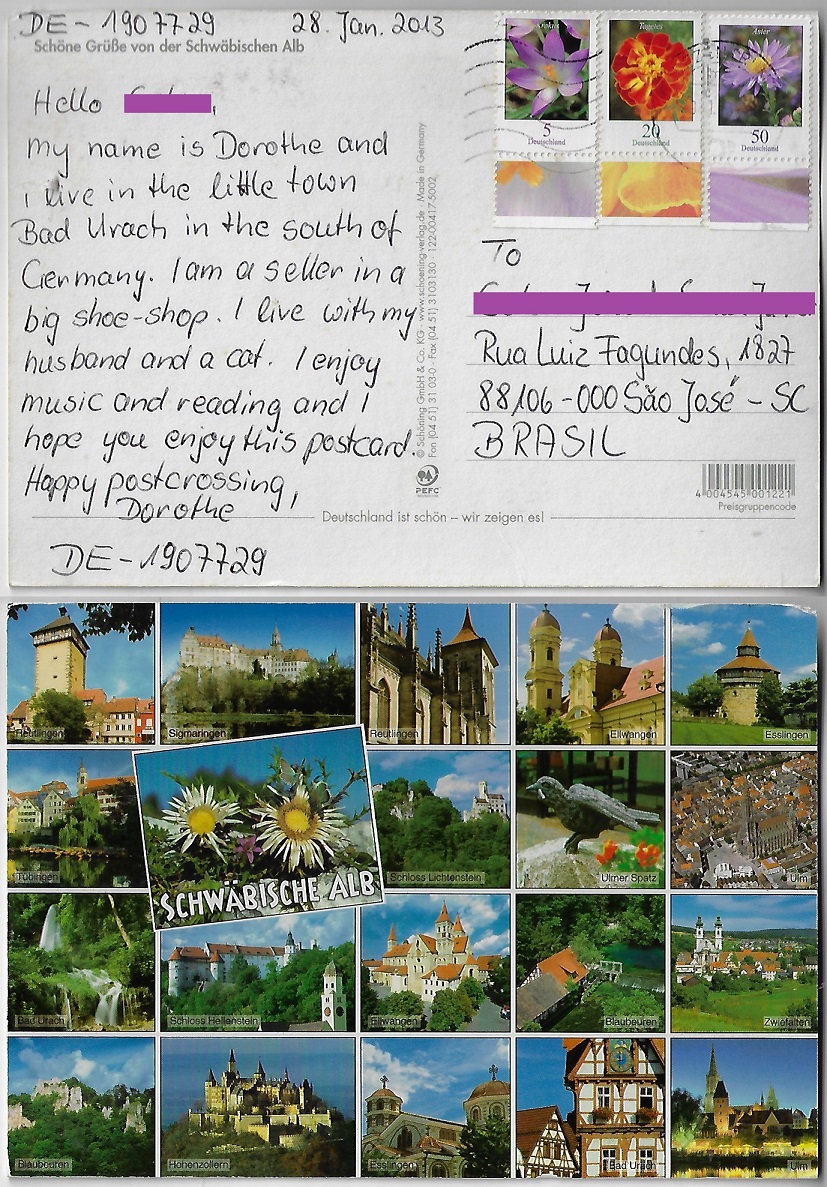 DE-1907729 28. Jan. 2013
Schöne Grüße von der Schwäbischen Alb
Hello
my name is Dorothe and
i live in the little town
Bad Urach in the south of
Germany. I am a seller in a
big shoe-shop. I live with my
husband and a cat. I enjoy
music and reading and I
hope you enjoy this postcard.
Happy postcrossing,
Dorothe
DE-1907729
© Schöning GmbH & Co. KG · www.schoening-verlag.de · Made in Germany
Fon (04 51) 31 03-0 · Fax (04 51) 3103130 · 122-00417-5002
PEFC
Krokus
5
Deutschland
Tagetes
20
Deutschland
Aster
50
Deutschland
To
Rua Luiz Fagundes, 1827
88106-000 São José - SC
BRASIL
4 004545 001221
Preisgruppencode
Deutschland ist schön – wir zeigen es!
Reutlingen
Sigmaringen
Reutlingen
Ellwangen
Esslingen
Tübingen
SCHWÄBISCHE ALB
Schloss Lichtenstein
Ulmer Spatz
Ulm
Bad Urach
Schloss Hellenstein
Ellwangen
Blaubeuren
Zwiefalten
Blaubeuren
Hohenzollern
Esslingen
Bad Urach
Ulm